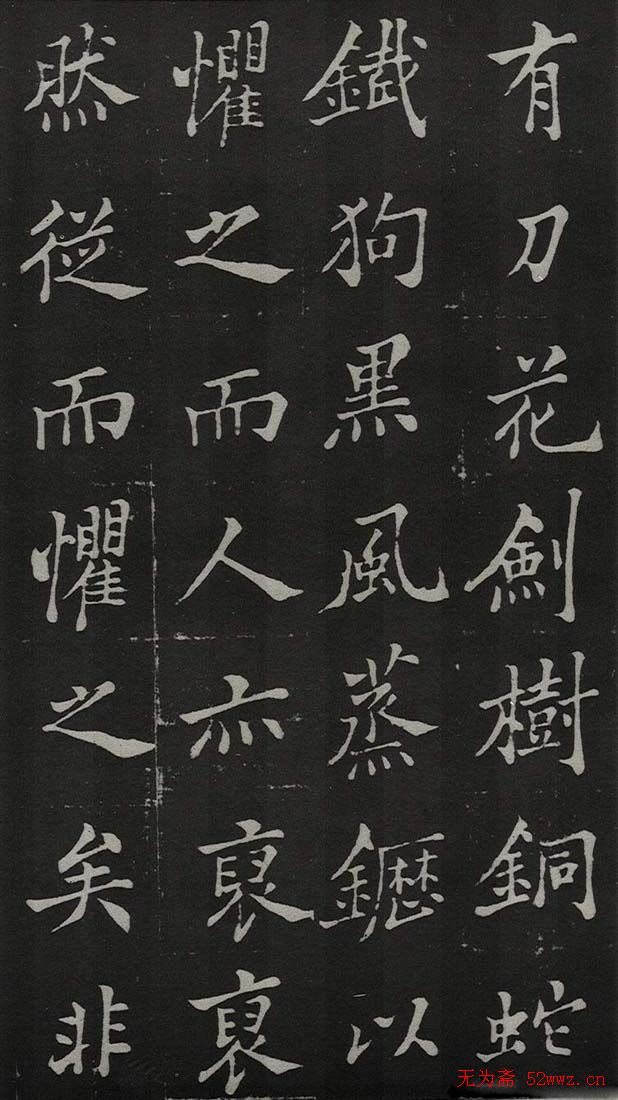 有刀花劍樹銅蛇
鐵狗黑風蒸䥶以
懼之而人亦裒裒
然從而懼之矣非
无为斋 52wwz.cn